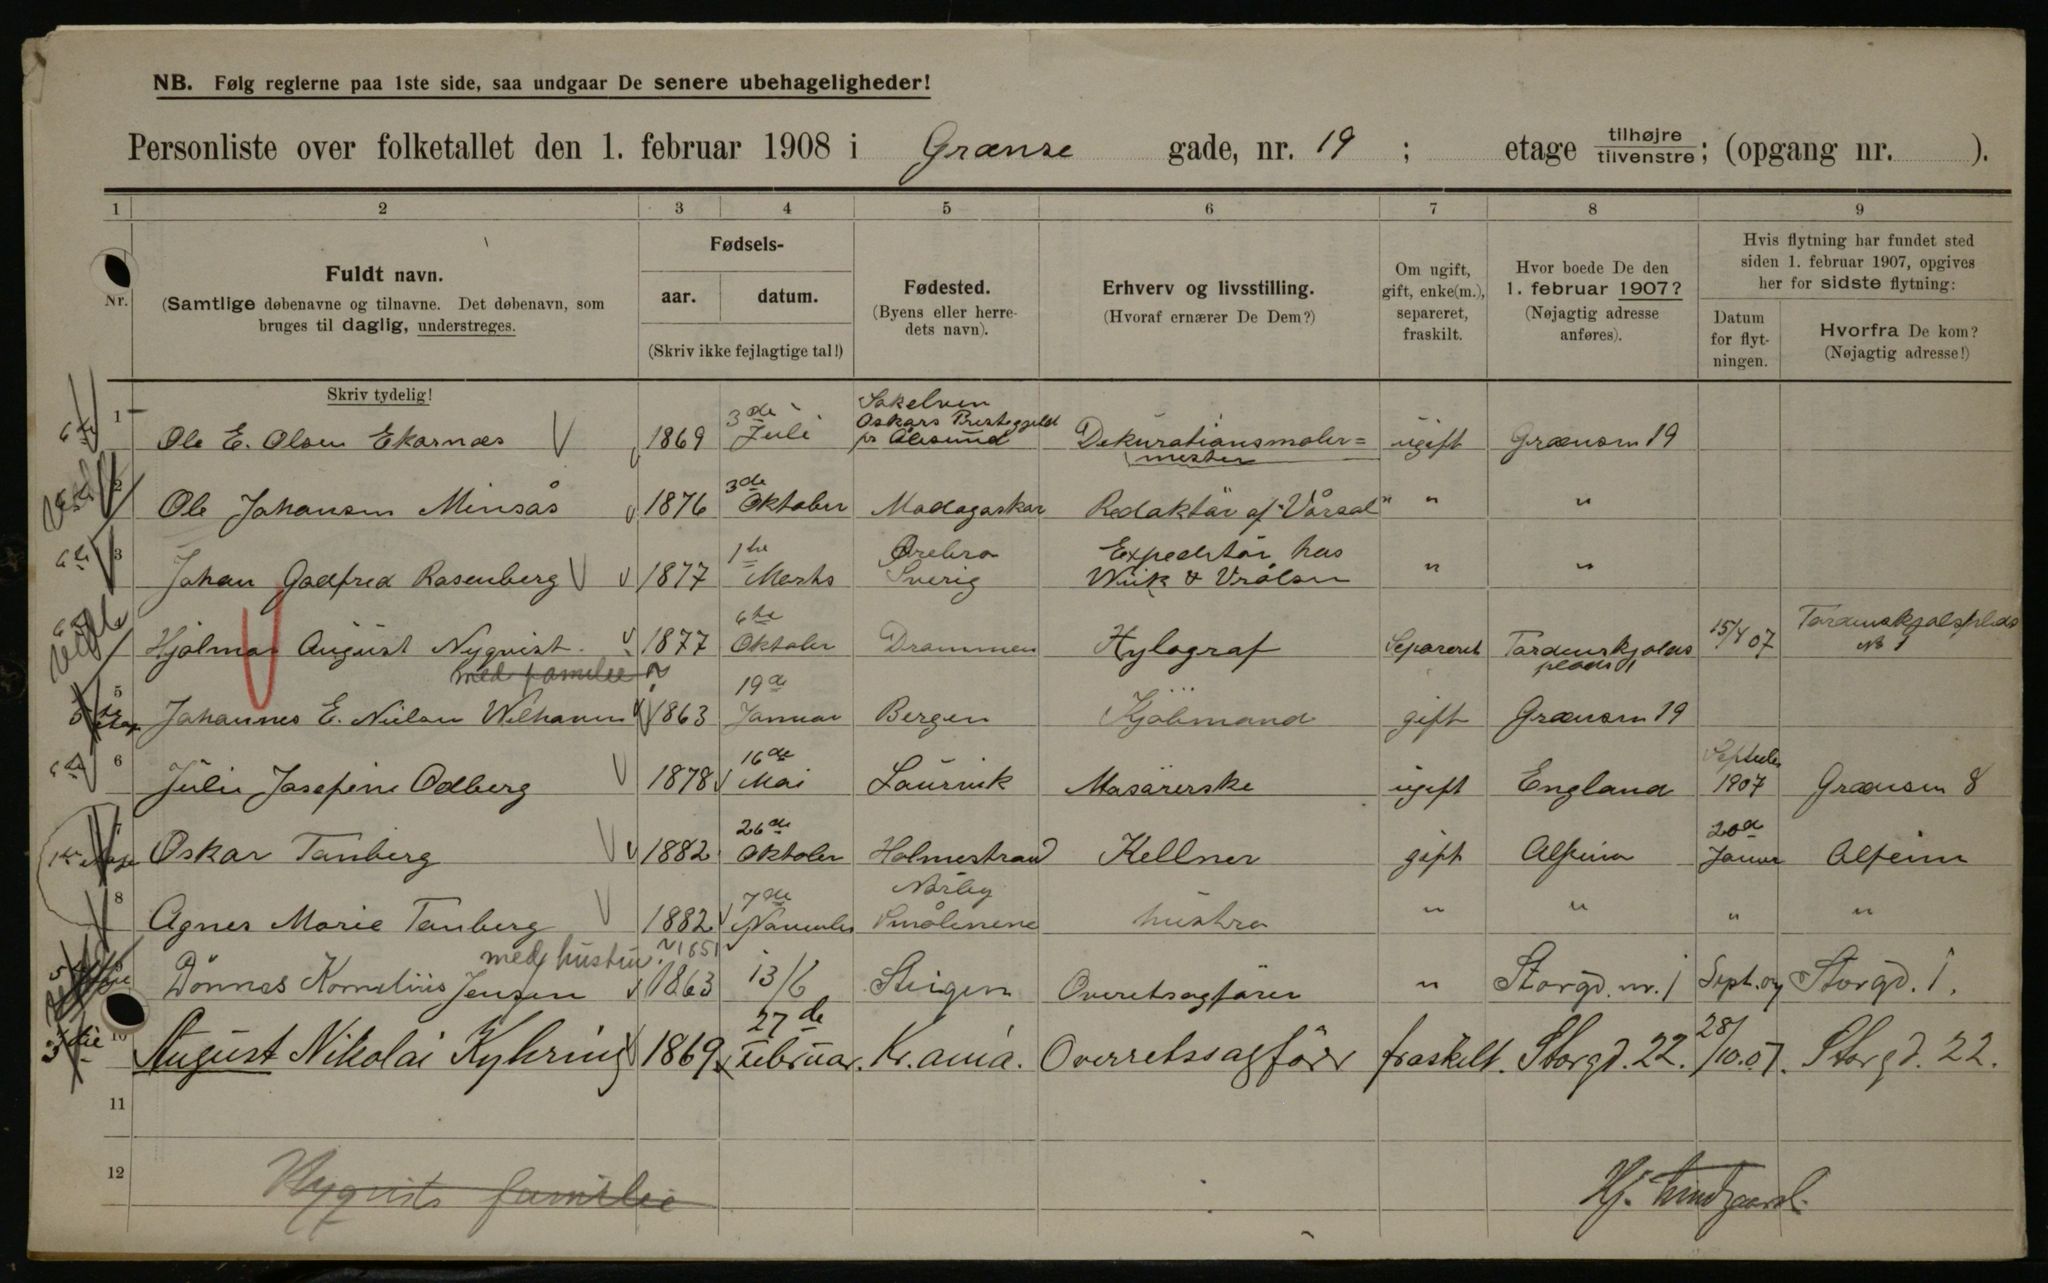 NB. Følg reglerne paa 1ste side, saa undgaar De senere ubehageligheder!
Personliste over folketallet den 1. februar 1908 i Grænse gade, nr. 19 ; etage tilhøjre tilvenstre; (opgang nr. ).
1 2 3 4 5 6 7 8 9
Nr.
Fuldt navn.
(Samtlige døbenavne og tilnavne. Det døbenavn, som
bruges til daglig, understreges.
Skriv tydelig!
Fødsels-
aar. datum.
(Skriv ikke fejlagtige tal!)
Fødested.
(Byens eller herre-
dets navn).
Erhverv og livsstilling.
(Hvoraf ernærer De Dem?)
Om ugift,
gift, enke(m.),
separeret,
fraskilt.
Hvor boede De den
1. februar 1907?
(Nøjagtig adresse
anføres).
Hvis flytning har fundet sted
siden 1. februar 1907, opgives
her for sidste flytning:
Datum
for flyt-
ningen.
Hvorfra De kom?
(Nøjagtig adresse!)
1 Ole E. Olsen Ekornæs 1869 3de Juli Oskars Prestegjeld pr Ålesund Dekurationsmaler= mester ugift Grænsen 19
2 Ole Johansen Minsås 1876 3de Oktober Madagaskar Redaktør af "Vårsol" " "
3 Johan Godfred Rosenberg 1877 1te Marts Ørebro Sverig Expeditør hos Wiik & Vrålsen " "
Hjalmar August Nyqvist 1877 6te Oktober Drammen Xylograf Separeret Tordenskjolds plads 1 15/4 07 Tordenskjolspleds No 1
med familie
5 Johannes E. Nielsen Welhaven 1863 19d Januar Bergen Kjøbmand gift Grænsen 19
6 Julie Josefine Odberg 1878 16de Mai Laurvik Masørerske ugift England 1907 Grænsen 8
Oskar Tanberg 1882 26de Oktober Holmestrand Kellner gift Alfeim 20d Januar Alfeim
8 Agnes Marie Tanberg 1882 7de November Smålenene hustru " " " "
med hustru 1851
Dønnes Kornelius Jensen 1863 13/6 Steigen Overetsagfører " Storgd. nr. 1 Sept. 07 Storgd. 1.
10 August Nikolai Kyhring 1869 27de Februar. Kr.ania. Overretssagfører fraskilt. Storgd. 22. 28/10.07. Storgd. 22.
11
12
Nyqvists familie